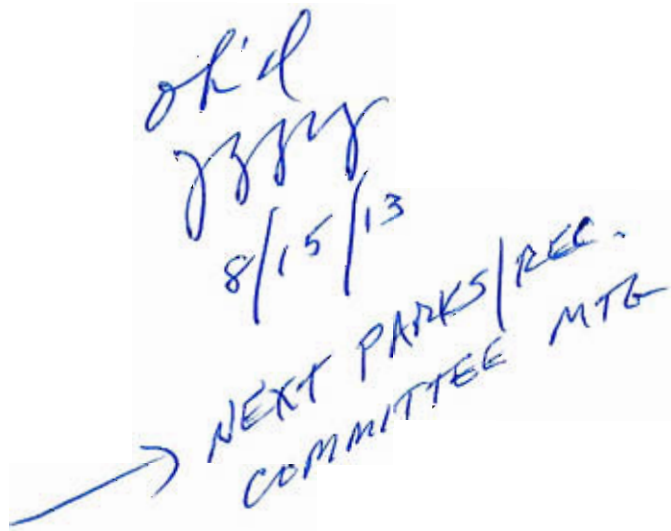 ok'd
8/15/13
→ NEXT PARKS/REC.
COMMITTEE MTG